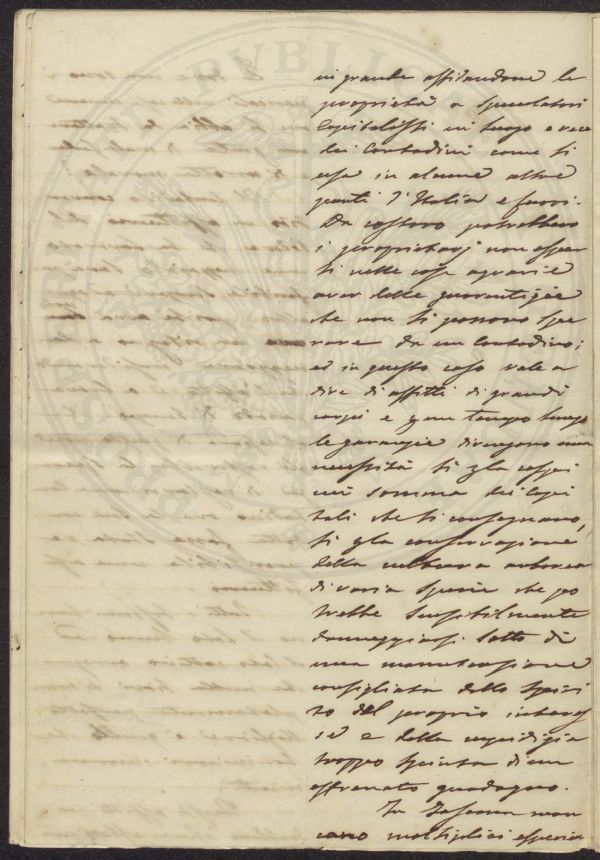 in grande affittandone le
proprietà a speculatori
Capitalisti in luogo e vece
dei Contadini come si
usa in alcune altre
parti d'Italia e fuori.
Da costoro potrebbero
i proprietarj non esper
ti nelle cose agrarie
aver delle guarentigie
che non si possono spe
rare da un Contadino;
ed in questo caso vale a
dire di affitti di grandi
corpi e per un tempo lungo
le garanzie divengono una
necessità sì per la cospi
cua somma dei Capi
tali che si consegnano,
sì per la conservazione
della cultura arborea
di varia specie che po
trebbe sensibilmente
danneggiarsi sotto di
una manutenzione
consigliata dallo spiri
to del proprio interes
se e della cupidigia
troppo spinta di un
effrenato guadagno.
In Toscana man
cano moltiplici esperien